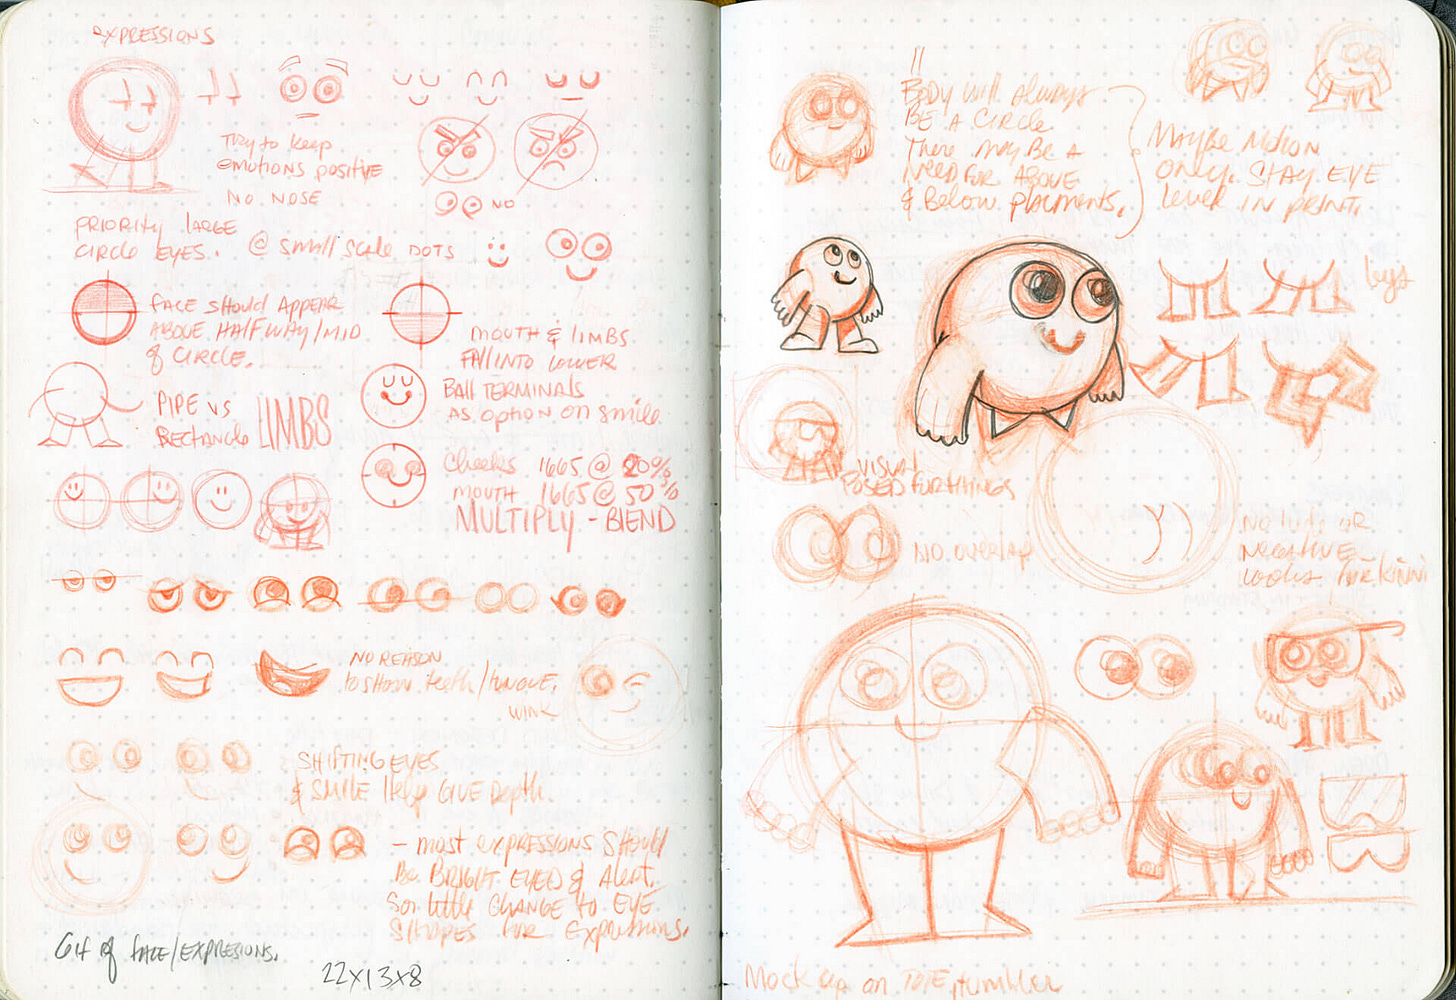 EXPRESSIONS
TRY to keep
emotions positive
NO NOSE
NO
PRIORITY large
CIRCLE EYES. @ small scale DOTS
FACE SHOULD APPEAR
ABOVE HALFWAY/MID
of CIRCLE.
MOUTH & LIMBS
FALL INTO LOWER
PIPE VS
RECTANGLE LIMBS
BALL TERMINALS
AS OPTION ON SMILE
Cheeks 1665 @ 20%
MOUTH 1665 @ 50%
MULTIPLY - BLEND
NO REASON
to SHOW teeth/TONGUE.
WINK
SHIFTING EYES
& SMILE Help GIVE Depth.
- most expressions SHOULD
Be BRIGHT EYED & Alert.
So little CHANGE to EYE
SHAPES FOR EXPRESSIONS.
GIF of FACE/EXPRESIONS.
22x13x8
Body will always
BE A CIRCLE
There MAY BE A
NEED FOR ABOVE
& Below PLACMENTS.
MAYBE MOTION
ONLY. STAY EYE
level IN PRINT.
legs
VISUAL
POSED FOR THINGS
NO overlap
NEGATIVE
looks for
Mock up on TOTE, tumbler